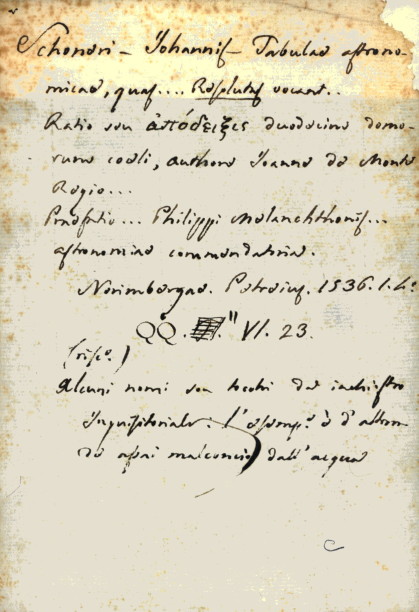 Schoneri – Johannis – Tabulae astrono-
micae, quas.... Resolutas vocant..
Ratio seu ἀπόδειξις duodecim domo-
rum coeli, authore Joanne de Monte
Regio...
Praefatio... Philippi Melanchthonis...
astronomiae commendatoria.
Norimbergae. Petreius. 1536. 1. 4.º
QQ. " VI. 23.
(risc.º)
Alcuni nomi son tocchi da inchiostro
Inquisitoriale. l'esemp.º è d'altron-
de assai malconcio dall'acqua